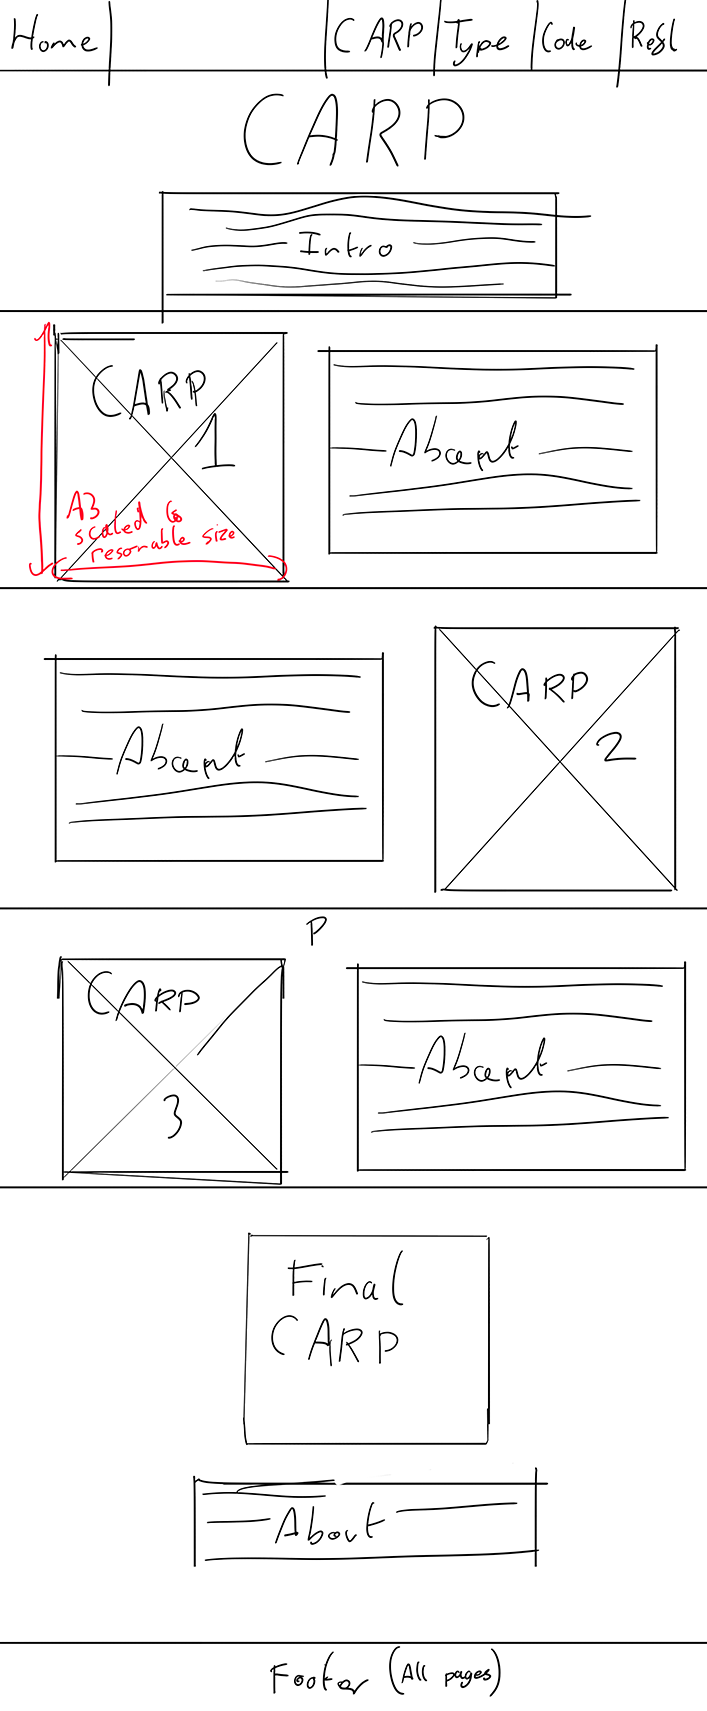 Home CARP Type Code Refl
CARP
Intro
CARP
1
A3
scaled to
resonable size
About
CARP
2
About
P
CARP
3
About
Final
CARP
About
Footer (All pages)